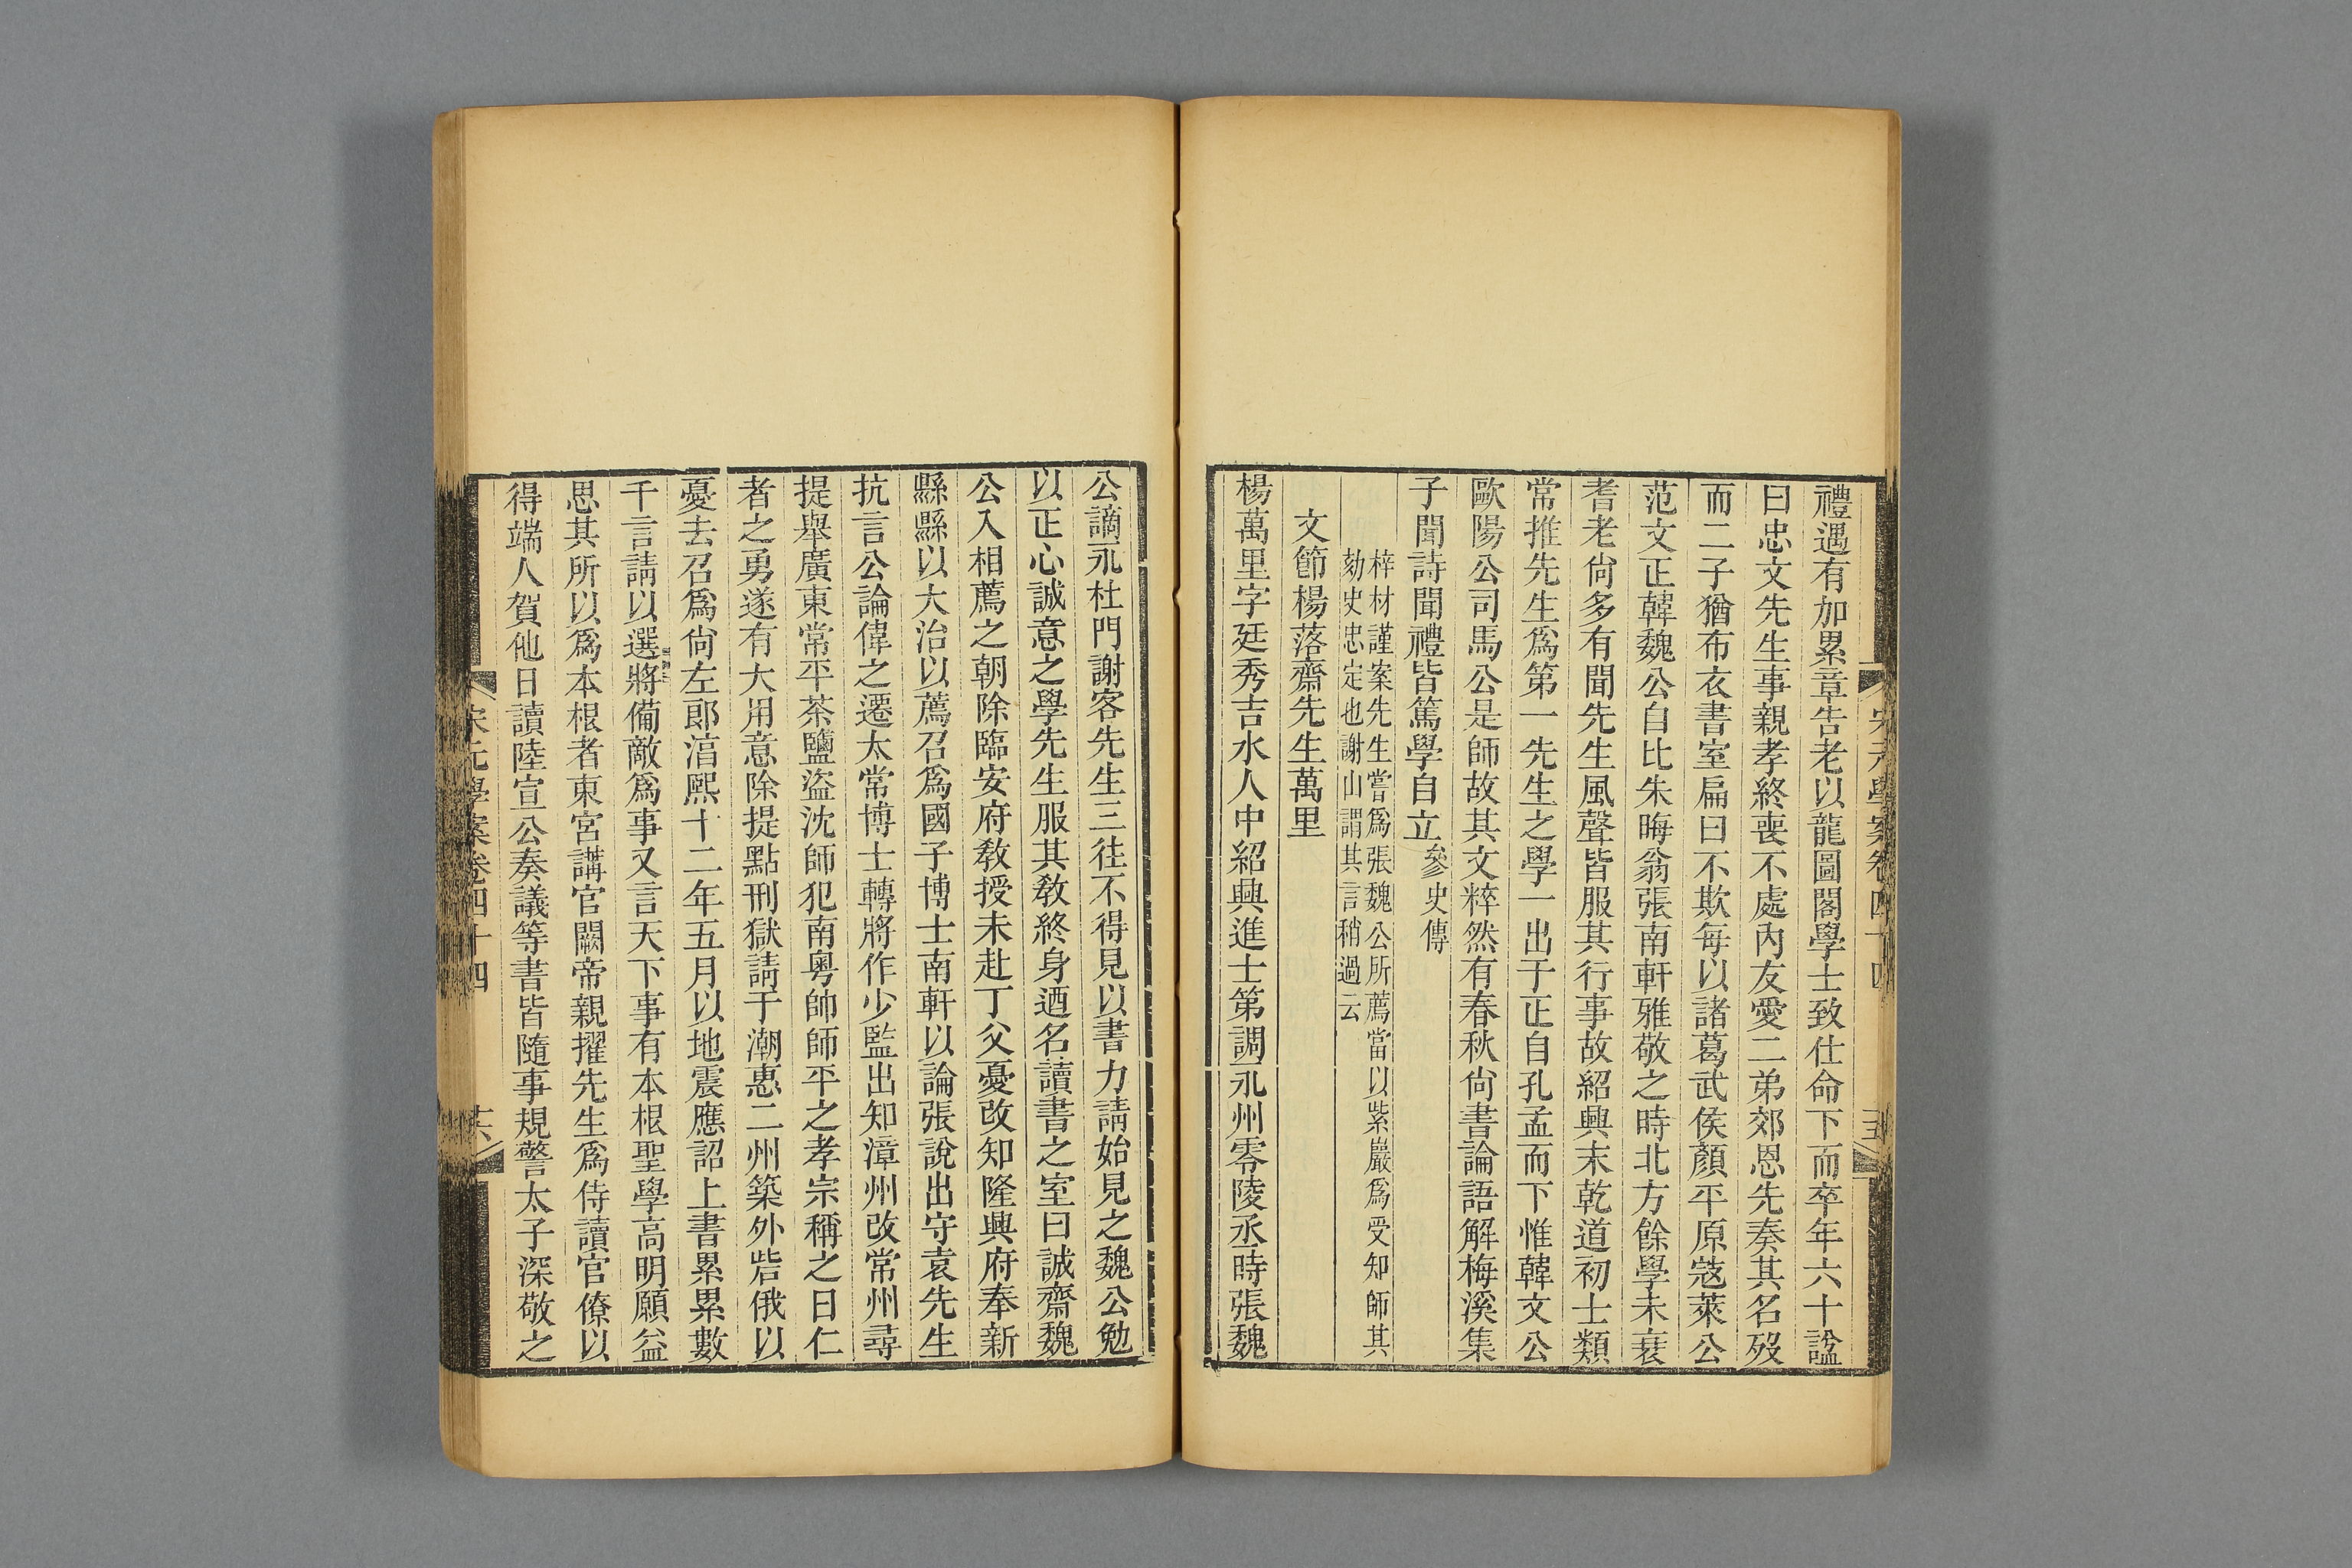 禮遇有加累章告老以龍圖閣學士致仕命下而卒年六十諡
曰忠文先生事親孝終喪不處內友愛二弟郊恩先奏其名歿
而二子猶布衣書室扁曰不欺每以諸葛武侯顏平原寇萊公
范文正韓魏公自比朱晦翁張南軒雅敬之時北方餘學未衰
耆老尙多有聞先生風聲皆服其行事故紹興末乾道初士類
常推先生爲第一先生之學一出于正自孔孟而下惟韓文公
歐陽公司馬公是師故其文粹然有春秋尙書論語解梅溪集
子聞詩聞禮皆篤學自立參史傳
梓材謹案先生嘗爲張魏公所薦當以紫巖爲受知師其
劾史忠定也謝山謂其言稍過云
文節楊落齋先生萬里
楊萬里字廷秀吉水人中紹興進士第調永州零陵丞時張魏
公謫永杜門謝客先生三往不得見以書力請始見之魏公勉
以正心誠意之學先生服其敎終身迺名讀書之室曰誠齋魏
公入相薦之朝除臨安府敎授未赴丁父憂改知隆興府奉新
縣縣以大治以薦召爲國子博士南軒以論張說出守袁先生
抗言公論偉之遷太常博士轉將作少監出知漳州改常州尋
提舉廣東常平茶鹽盜沈師犯南粵帥師平之孝宗稱之曰仁
者之勇遂有大用意除提點刑獄請于潮惠二州築外砦俄以
憂去召爲尙左郞淯熙十二年五月以地震應詔上書累累數
千言請以選將備敵爲事又言天下事有本根聖學高明願益
思其所以爲本根者東宮講官闕帝親擢先生爲侍讀官僚以
得端人賀他日讀陸宣公奏議等書皆隨事規警太子深敬之
宋元學案卷四十四